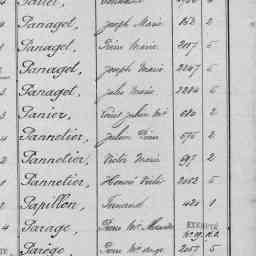 Panaget, Joseph Marie 858 2
Panaget, Pierre Marie 2007 5
Panaget, Joseph Marie 2247 5
Panaget, Jules Marie 2284 5
Panier, Louis Julien Mie 680 2
Pannetier, Julien Pierre 575 2
Pannetier, Victor Marie 697 2
Pannetier, Honoré 2003 5
Papillon, Fernand 420 1
Parage, Pierre Mie Alexandre
Parège, Pierre Mie Ange 2057 5